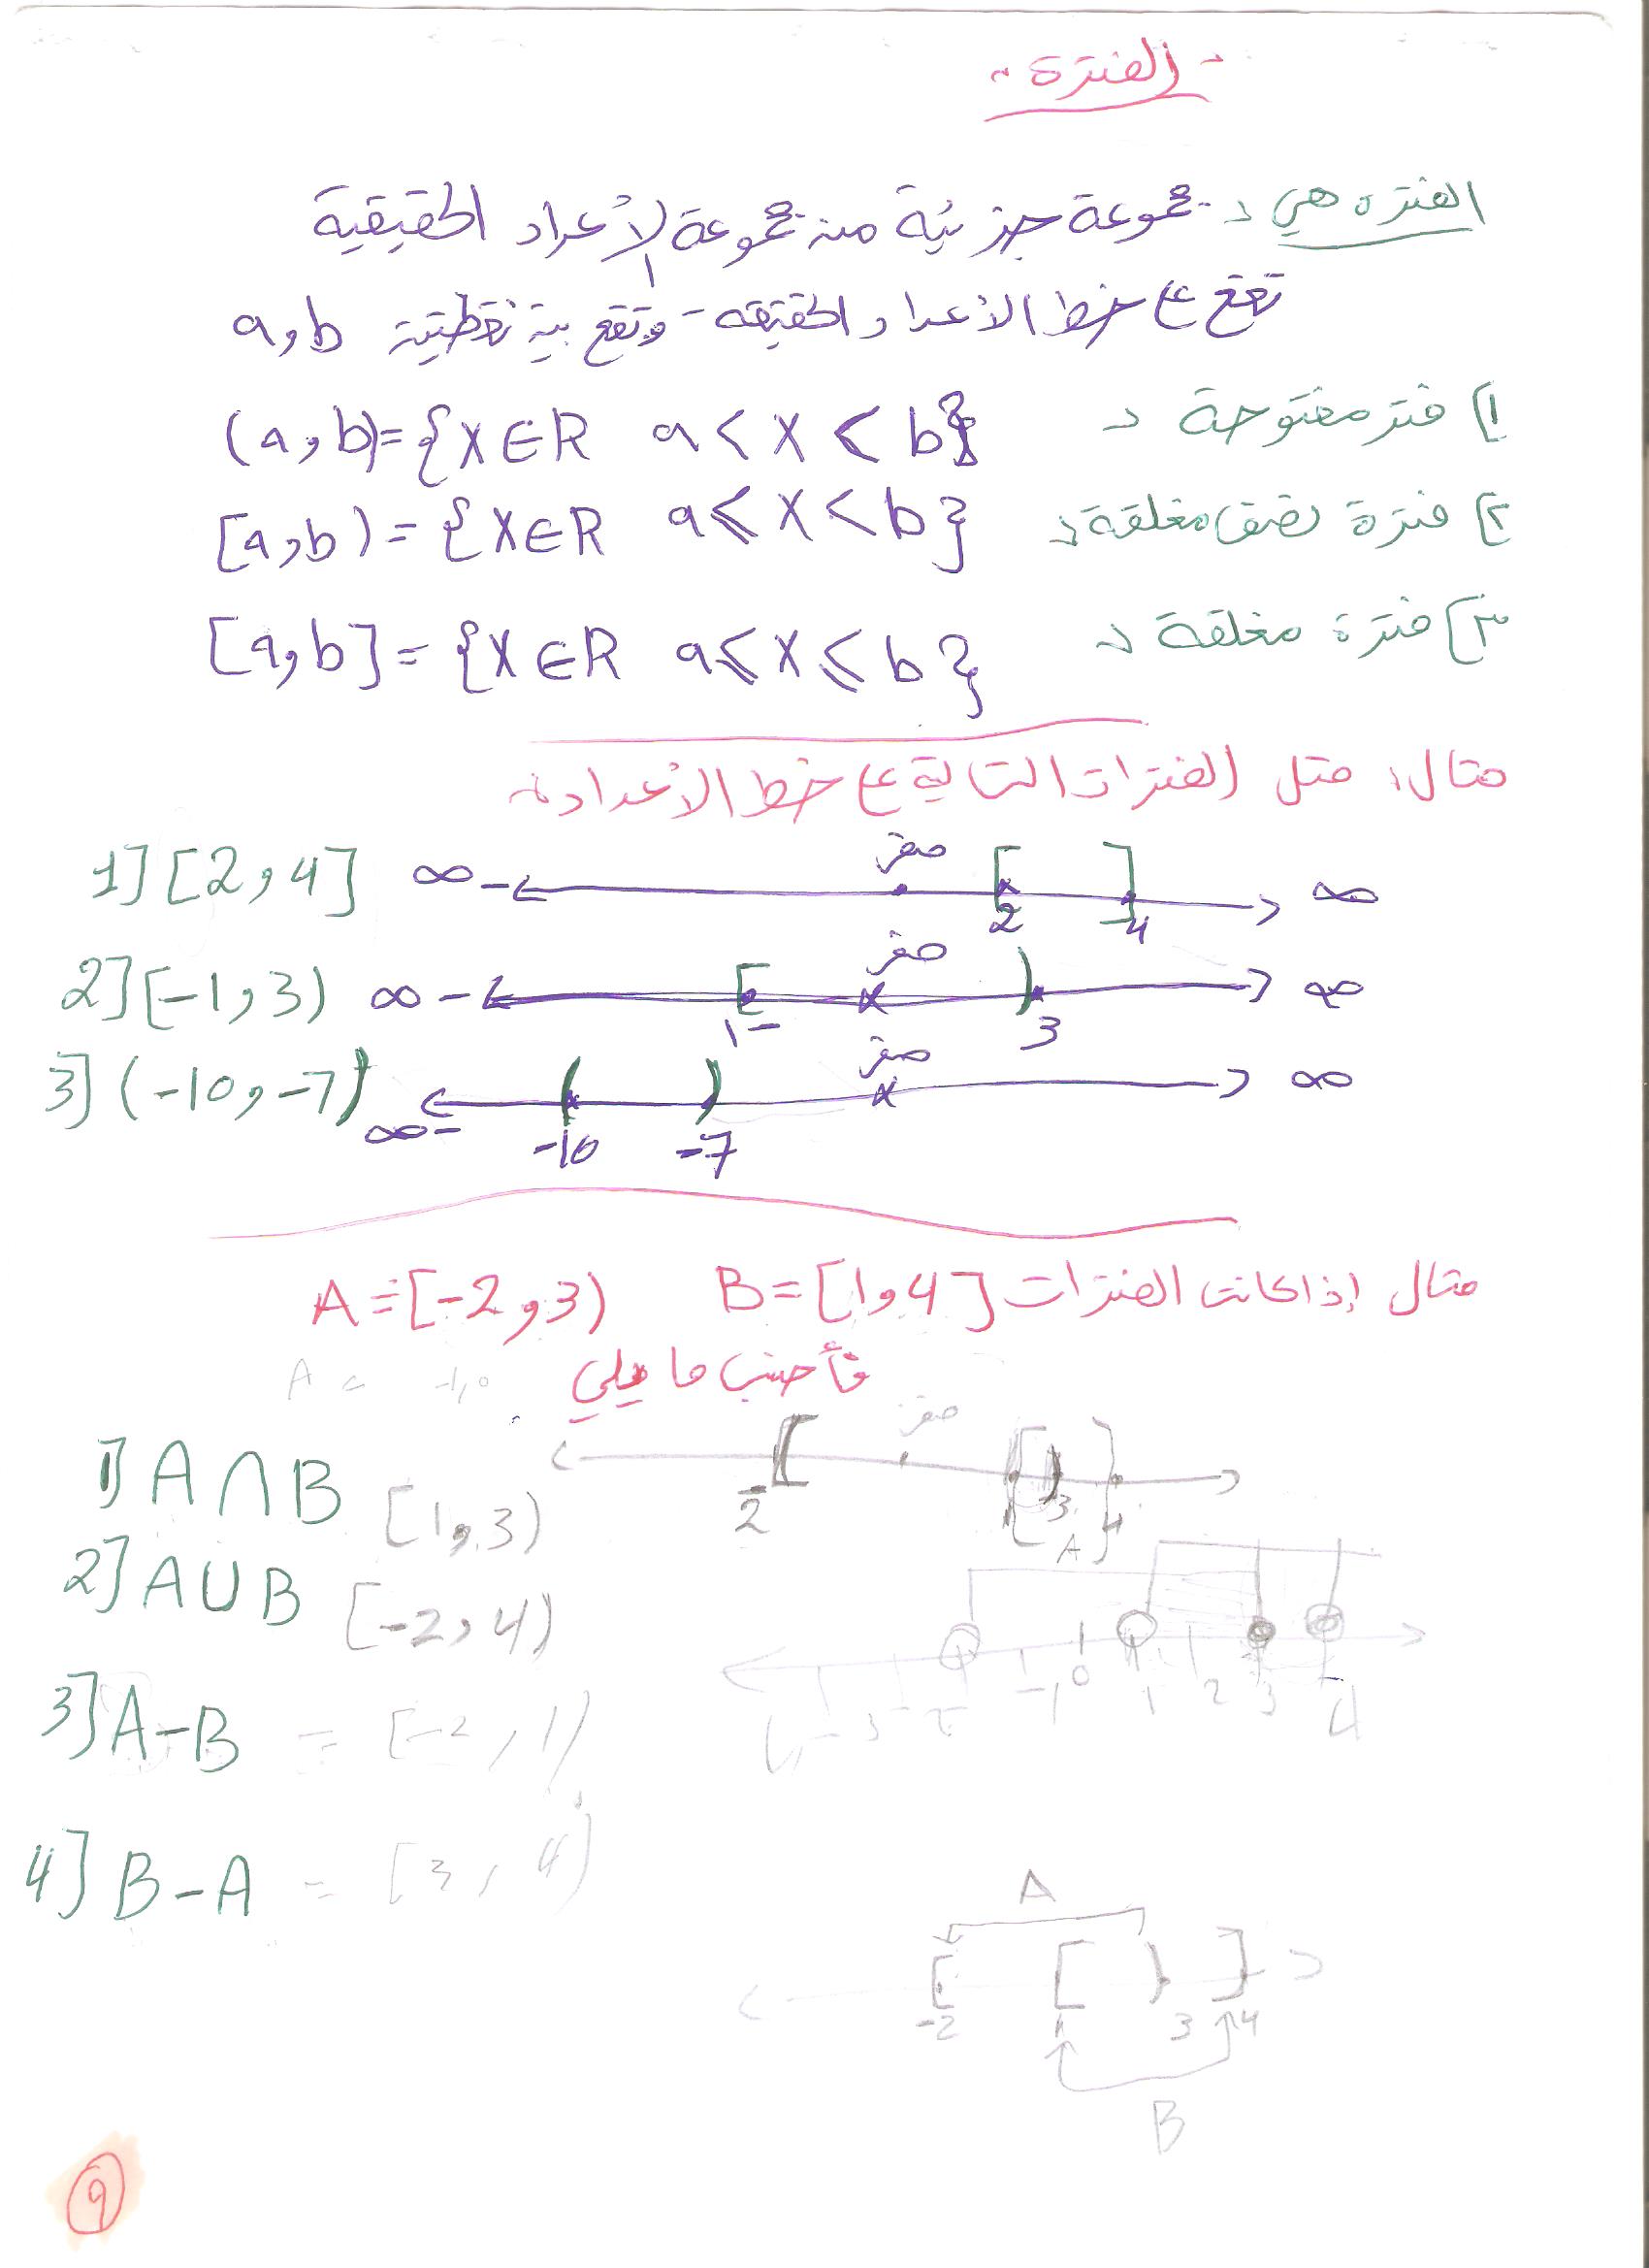 الفترة
الفتره هي : مجموعة جزئية من مجموعة الأعداد الحقيقية
تقع ع خط الأعداد الحقيقه - وتقع بين نقطتين a,b
١] فتر مفتوحة : (a,b)={X∈R a<X<b}
٢] فترة نصف مغلقة : [a,b)={X∈R a≤X<b}
٣] فترة مغلقة : [a,b]={X∈R a≤X≤b}
مثال: مثل الفترات التالية ع خط الأعداد:
1] [2,4] ∞- صفر 2 4 ∞
2] [-1,3) ∞- 1- صفر 3 ∞
3] (-10,-7) ∞- -10 -7 صفر ∞
مثال إذا كانت الفترات B=[1,4] A=[-2,3)
فأحسب ما يلي
A =
1] A∩B [1,3) -2 صفر 3 4 A
2] A∪B [-2,4)
-1 0 1 2 3 4
3] A-B = [-2,1)
4] B-A = [3,4)
A
-2 1 3 4
B
٩